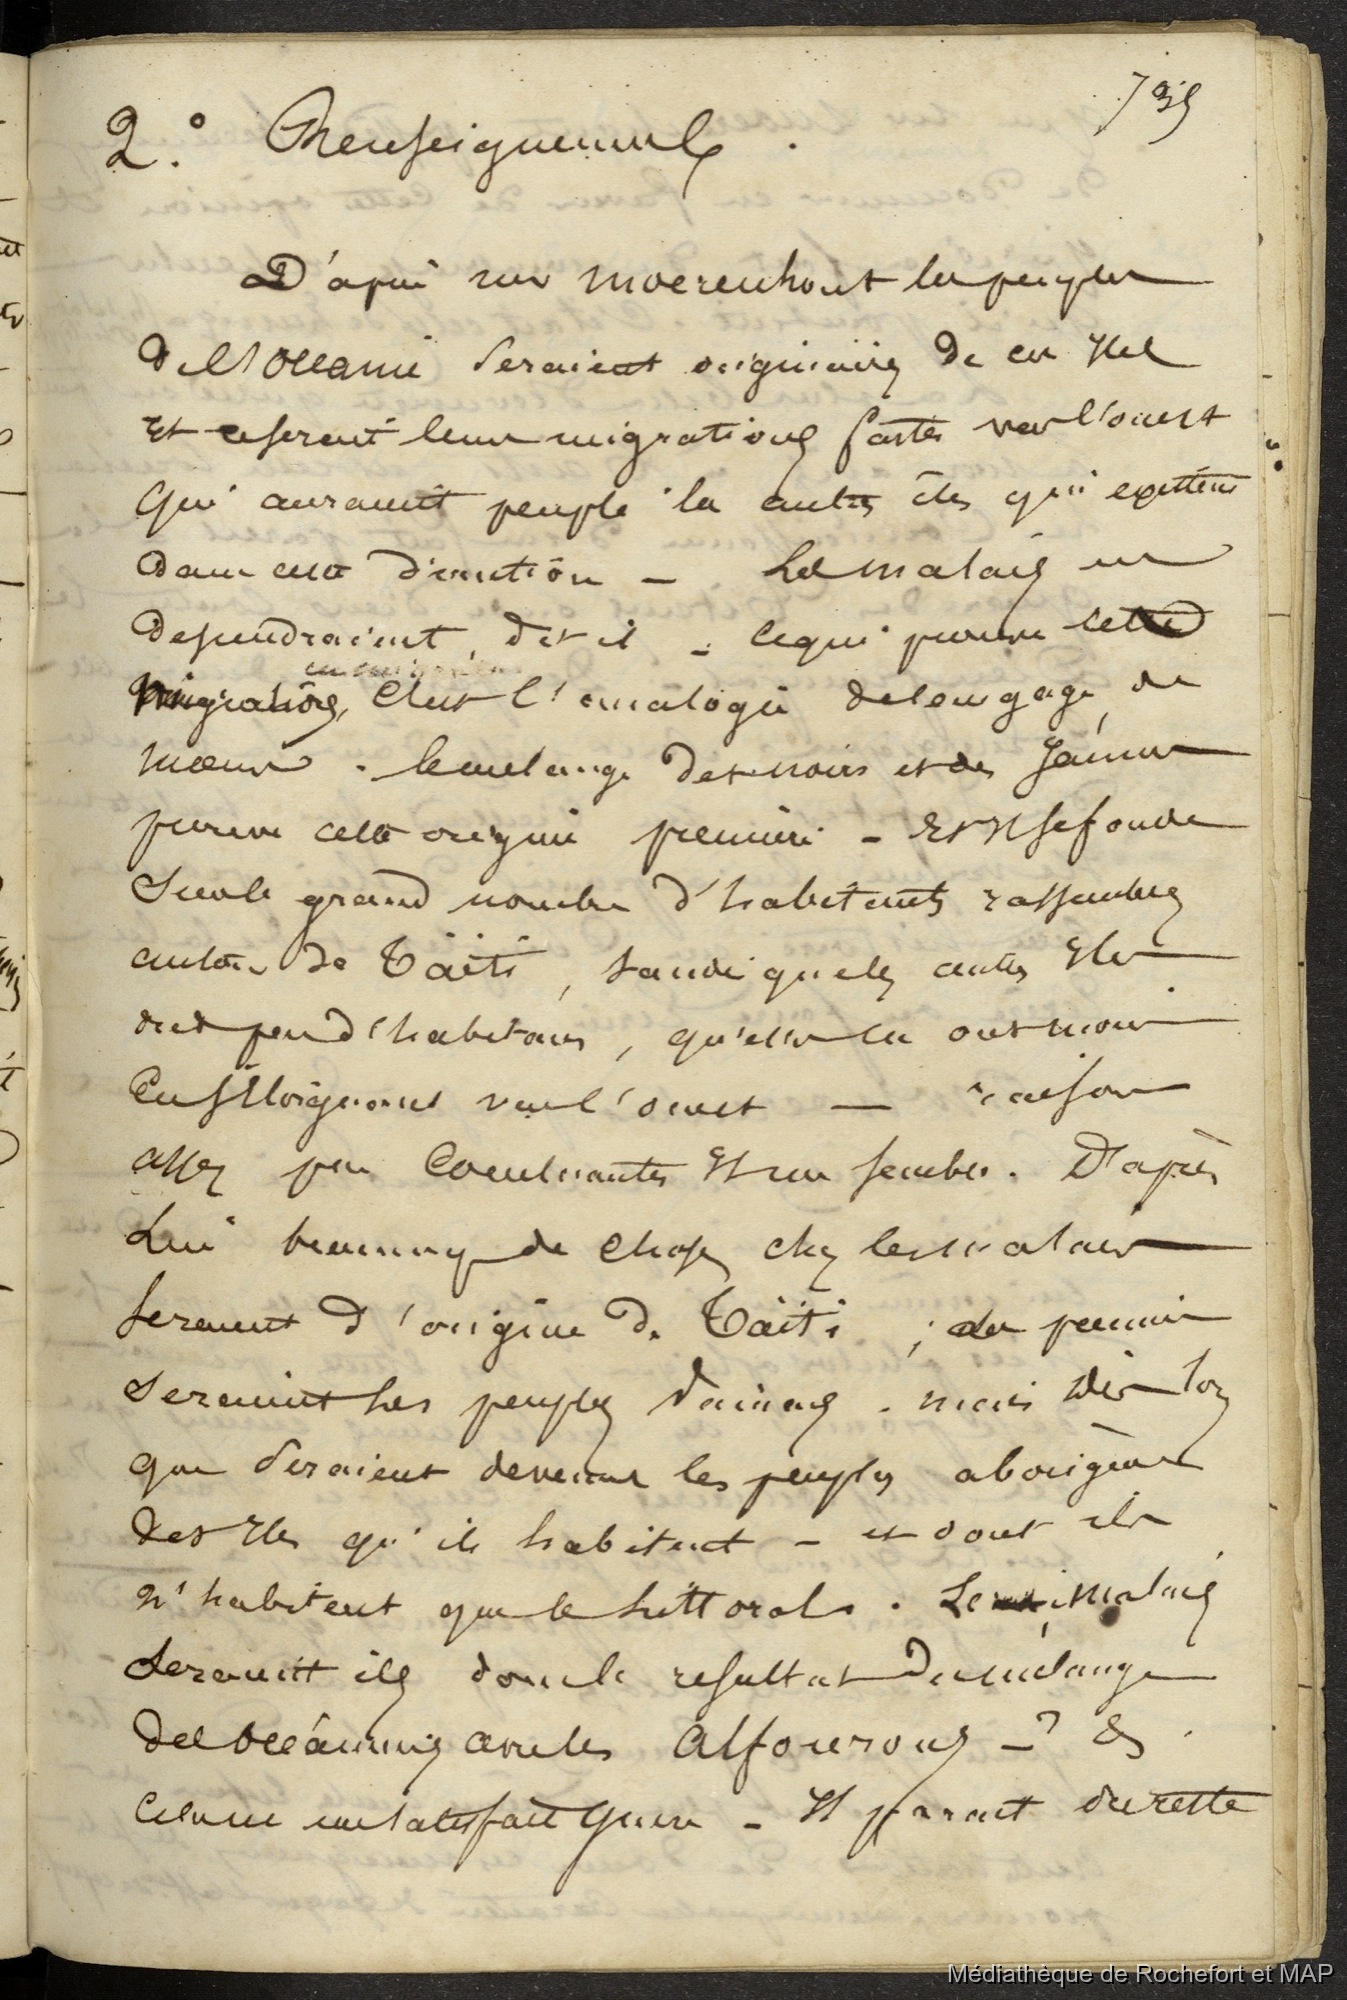 739
2.° Renseignements.
D'après mr Moerenhout les peuples
de l'Océanie seraient originaires de ces Iles
Et ce serait leurs migrations faites vers l'ouest
qui auraient peuplé les autres îles qui existent
dans cette direction — Les malais en
descendraient, dit il - ce qui prouve cette
migration, c'est l'analogie de langage, de
mœurs. le mélange des noirs et des jaunes
prouve cette origine première - Et Il se fonde
sur le grand nombre d'habitants rassemblés
autour de Taïti, tandis que les autres Iles
ont peu d'habitans, qu'elles en ont moins
en s'éloignant vers l'ouest — raison
assez peu concluantes Il me semble. D'après
Lui beaucoup de choses chez les malais
seraient d'origine de Taïti ; ces premiers
seraient les peuples . mais dès lors
que seraient devenus les peuples aborigènes
des Iles qu'ils habitent - et dont ils
n'habitent que le littoral. Les malais
seraient ils donc le resultat du mélange
des océaniens avec les Alfourous - ?
cela ne me satisfait guère - Il parait du reste
Médiathèque de Rochefort et MAP